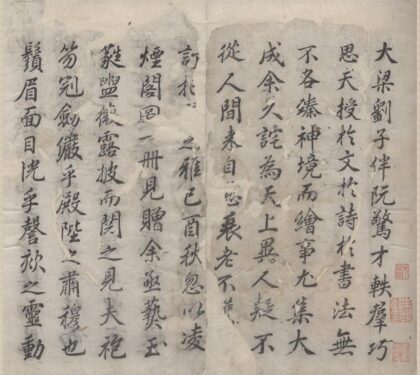 大梁劉子伴阮驚才軼羣巧
思天授於文於詩於書法無
不各臻神境而繪事尤集大
成余久詫為天上異人疑不
從人間来自忘衰老不
訂 之雅己酉秋忽以凌
煙閣圖一冊見贈余亟爇玉
蕤盥薇露披而閱之見夫袍
笏冠劒儼乎殿陛之肅穆也
鬚眉面目恍乎謦欬之靈動